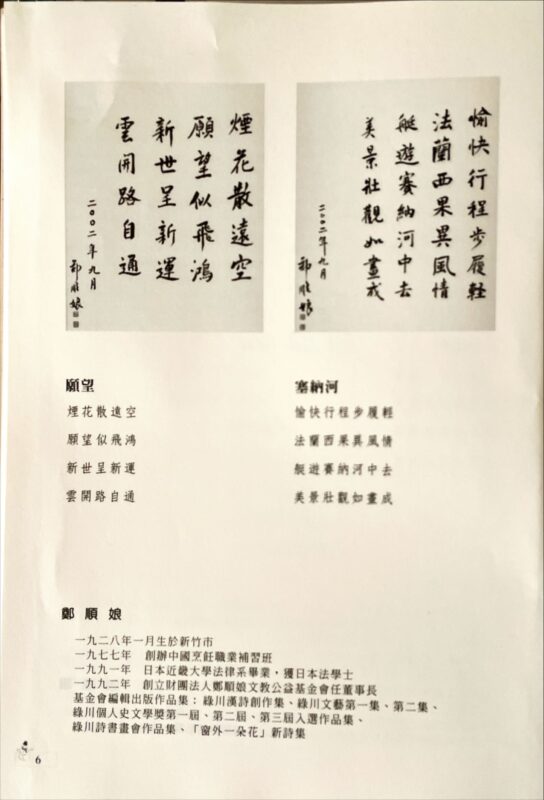 煙花散遠空
願望似飛鴻
新世呈新運
雲開路自通
二〇〇二年九月
鄭順娘
愉快行程步履輕
法蘭西果異風情
艇遊賽納河中去
美景壯觀如畫成
二〇〇二年九月
鄭順娘
願望
煙花散遠空
願望似飛鴻
新世呈新運
雲開路自通
塞納河
愉快行程步履輕
法蘭西果異風情
艇遊賽納河中去
美景壯觀如畫成
鄭順娘
一九二八年一月生於新竹市
一九七七年 創辦中國烹飪職業補習班
一九九一年 日本近畿大學法律系畢業，獲日本法學士
一九九二年 創立財團法人鄭順娘文教公益基金會任董事長
基金會編輯出版作品集：綠川漢詩創作集、綠川文藝第一集、第二集、
綠川個人史文學獎第一屆、第二屆、第三屆入選作品集、
綠川詩書畫會作品集、「窗外一朵花」新詩集
6